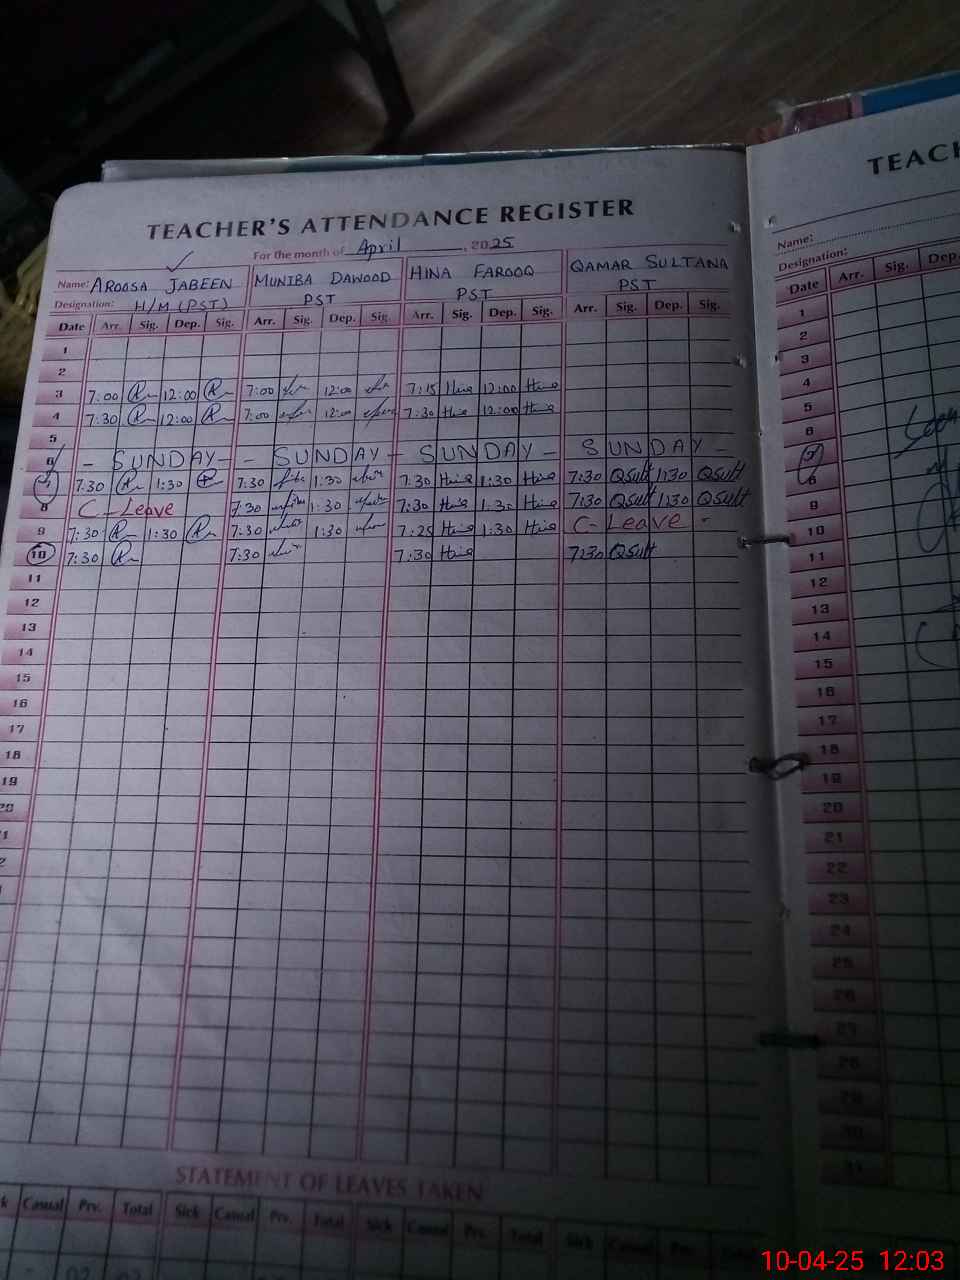 TEACHER'S ATTENDANCE REGISTER
For the month of April, 2025
Name: AROOSA JABEEN MUNIBA DAWOOD HINA FAROOQ QAMAR SULTANA
Designation: H/M (PST) PST PST PST
Date Arr. Sig. Dep. Sig. Arr. Sig. Dep. Sig. Arr. Sig. Dep. Sig. Arr. Sig. Dep. Sig.
1
2
3 7:00 12:00 7:00 12:00 7:15 Hina 12:00 Hina
4 7:30 12:00 7:00 12:00 7:30 Hina 12:00 Hina
5
6 - SUNDAY - - SUNDAY - SUNDAY - SUNDAY -
7 7:30 1:30 7:30 1:30 7:30 Hina 1:30 Hina 7:30 QSult 1:30 QSult
8 C-Leave 7:30 1:30 7:30 Hina 1:30 Hina 7:30 QSult 1:30 QSult
9 7:30 1:30 7:30 1:30 7:25 Hina 1:30 Hina C-Leave -
10 7:30 7:30 7:30 Hina 7:30 QSult
11
12
13
14
15
16
17
18
19
20
STATEMENT OF LEAVES TAKEN
Casual Prv. Total Sick Casual Prv. Total Sick Casual Prv. Total Sick Casual Prv. Total
TEACH
Name:
Designation:
Date Arr. Sig. Dep.
1
2
3
4
5
6
7
8
9
10
11
12
13
14
15
16
17
18
19
20
21
22
23
24
25
26
27
28
29
30
31
10-04-25 12:03